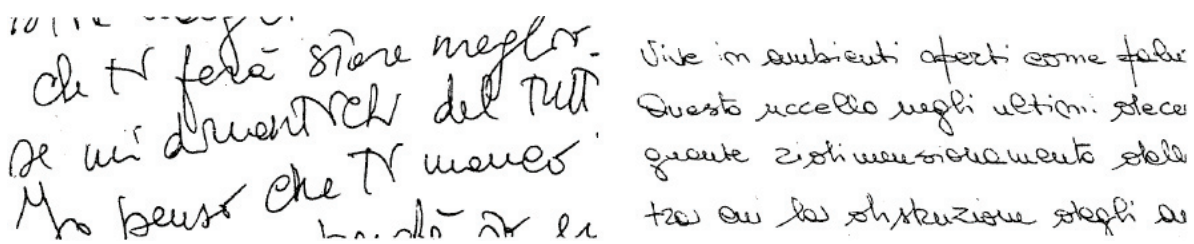 che ti farà stare meglio.
se mi dimentichi del tutt
Ma penso che ti manco
Vive in ambienti aperti come
Questo uccello negli ultimi dece
grante ridimensionamento delle
tra cui la distruzione degli a